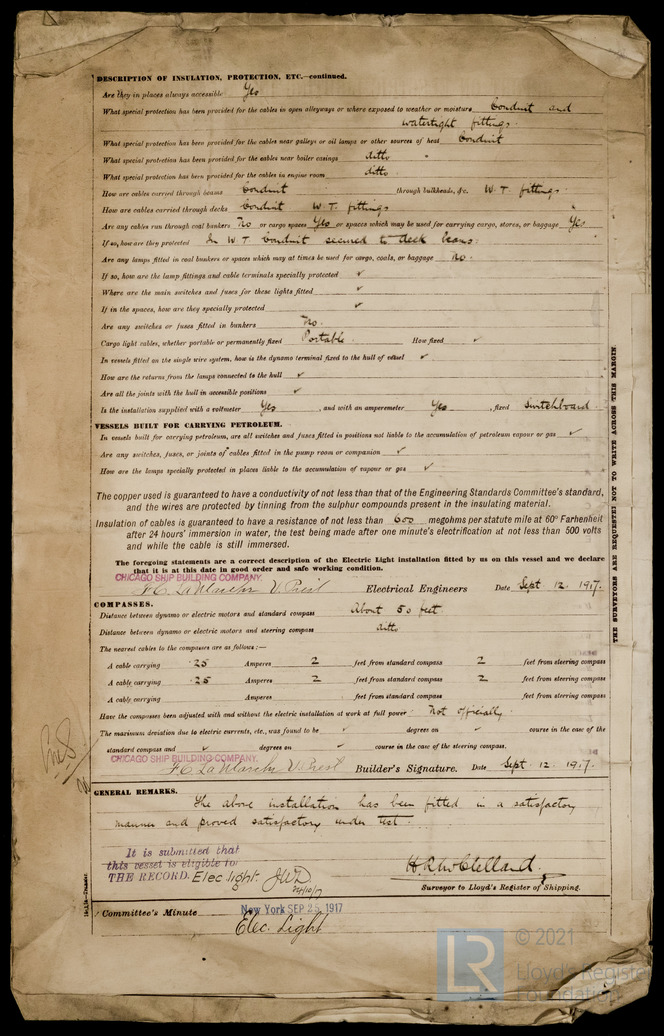 DESCRIPTION OF INSULATION, PROTECTION, ETC.—continued.
Are they in places always accessible Yes
What special protection has been provided for the cables in open alleyways or where exposed to weather or moisture Conduit and
watertight fittings.
What special protection has been provided for the cables near galleys or oil lamps or other sources of heat Conduit
What special protection has been provided for the cables near boiler casings ditto "
What special protection has been provided for the cables in engine room ditto.
How are cables carried through beams Conduit through bulkheads, &c. W.T. fittings.
How are cables carried through decks Conduit W.T. fittings
Are any cables run through coal bunkers No or cargo spaces Yes or spaces which may be used for carrying cargo, stores, or baggage Yes
If so, how are they protected In W T Conduit secured to deck beams.
Are any lamps fitted in coal bunkers or spaces which may at times be used for cargo, coals, or baggage No.
If so, how are the lamp fittings and cable terminals specially protected ✓
Where are the main switches and fuses for these lights fitted ✓
If in the spaces, how are they specially protected ✓
Are any switches or fuses fitted in bunkers No.
Cargo light cables, whether portable or permanently fixed Portable How fixed ✓
In vessels fitted on the single wire system, how is the dynamo terminal fixed to the hull of vessel ✓
How are the returns from the lamps connected to the hull ✓
Are all the joints with the hull in accessible positions ✓
Is the installation supplied with a voltmeter Yes , and with an amperemeter Yes , fixed Switchboard.
VESSELS BUILT FOR CARRYING PETROLEUM.
In vessels built for carrying petroleum, are all switches and fuses fitted in positions not liable to the accumulation of petroleum vapour or gas ✓
Are any switches, fuses, or joints of cables fitted in the pump room or companion ✓
How are the lamps specially protected in places liable to the accumulation of vapour or gas ✓
The copper used is guaranteed to have a conductivity of not less than that of the Engineering Standards Committee's standard,
and the wires are protected by tinning from the sulphur compounds present in the insulating material.
Insulation of cables is guaranteed to have a resistance of not less than 600 megohms per statute mile at 60° Farhenheit
after 24 hours' immersion in water, the test being made after one minute's electrification at not less than 500 volts
and while the cable is still immersed.
The foregoing statements are a correct description of the Electric Light installation fitted by us on this vessel and we declare
that it is at this date in good order and safe working condition.
CHICAGO SHIP BUILDING COMPANY.
V. Prest Electrical Engineers Date Sept 12 1917.
COMPASSES.
Distance between dynamo or electric motors and standard compass About 50 feet
Distance between dynamo or electric motors and steering compass ditto
The nearest cables to the compasses are as follows:—
A cable carrying .25 Amperes 2 feet from standard compass 2 feet from steering compass
A cable carrying .25 Amperes 2 feet from standard compass 2 feet from steering compass
A cable carrying Amperes feet from standard compass feet from steering compass
Have the compasses been adjusted with and without the electric installation at work at full power Not officially
The maximum deviation due to electric currents, etc., was found to be ✓ degrees on ✓ course in the case of the
standard compass and ✓ degrees on ✓ course in the case of the steering compass.
CHICAGO SHIP BUILDING COMPANY.
V. Prest Builder's Signature. Date Sept. 12. 1917.
GENERAL REMARKS.
The above installation has been fitted in a satisfactory
manner and proved satisfactory under test.
It is submitted that
this vessel is eligible for
THE RECORD. Elec light. JWD
24/10/17
H.R. McClelland.
Surveyor to Lloyd's Register of Shipping.
Committee's Minute New York SEP 25 1917
Elec. Light
THE SURVEYORS ARE REQUESTED NOT TO WRITE ACROSS THIS MARGIN.
LR © 2021
Lloyd's Register
Foundation